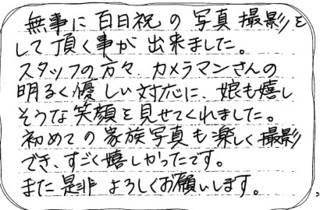 無事に百日祝の写真撮影を
して頂く事が出来ました。
スタッフの方々、カメラマンさんの
明るく優しい対応に、娘も嬉し
そうな笑顔を見せてくれました。
初めての家族写真も楽しく撮影
でき、すごく嬉しかったです。
また是非よろしくお願いします。